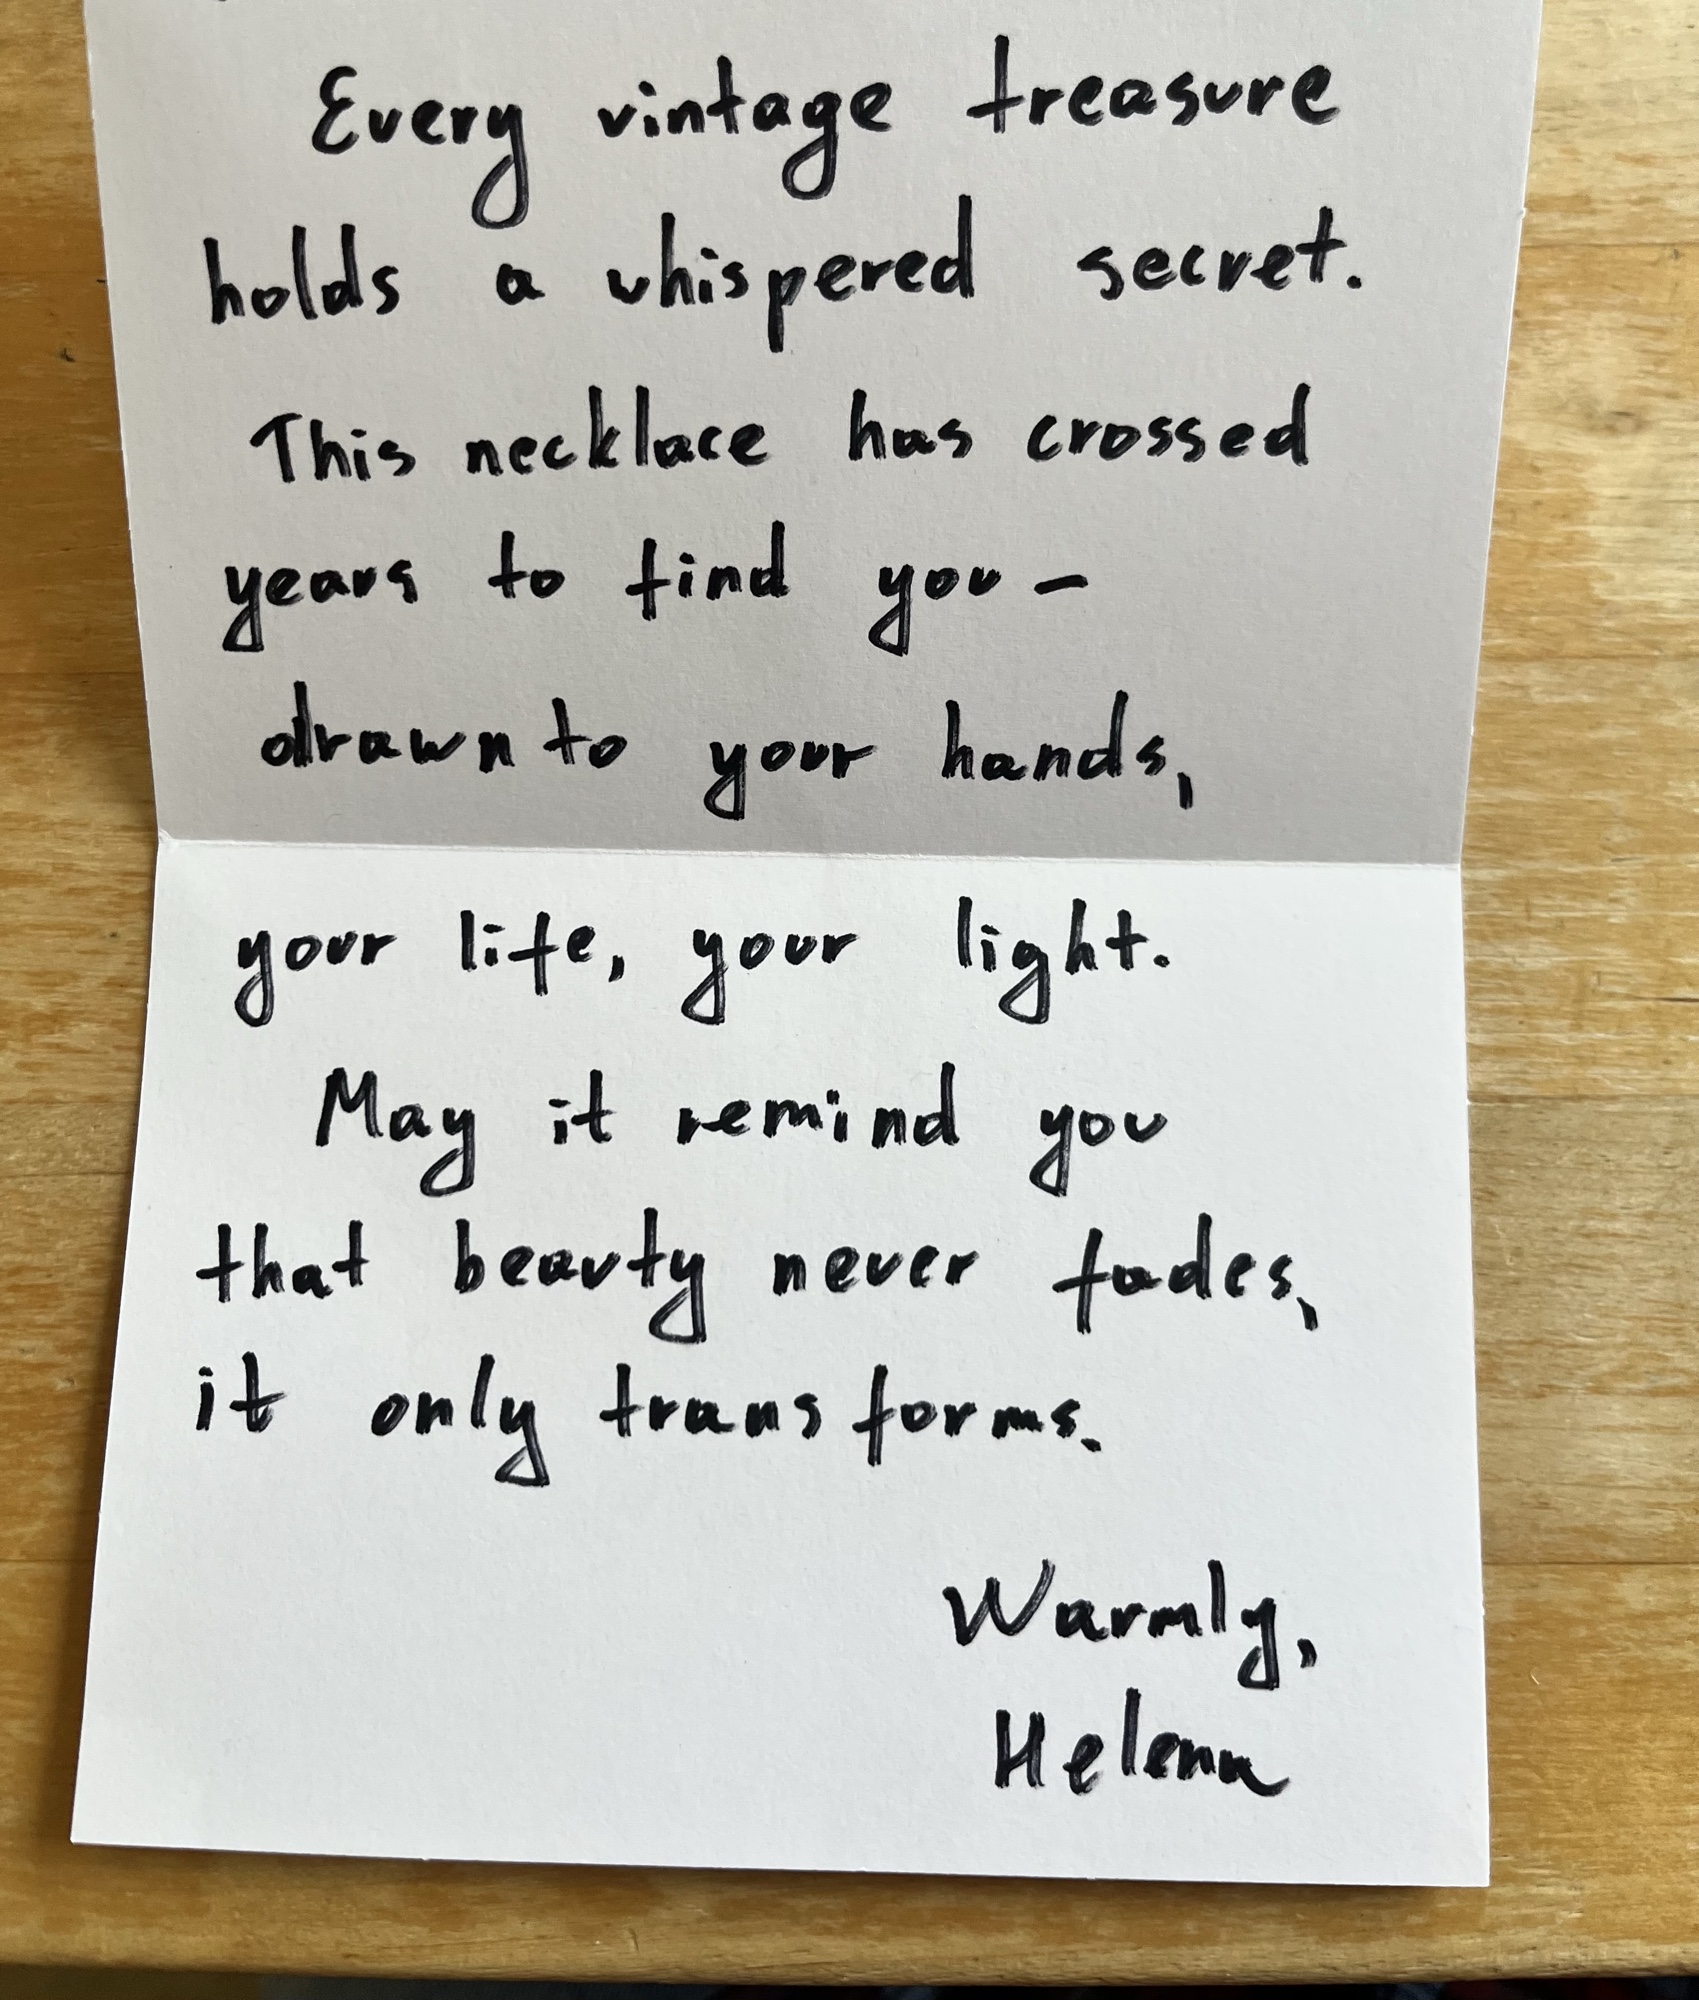 Every vintage treasure
holds a whispered secret.
This necklace has crossed
years to find you –
drawn to your hands,
your life, your light.
May it remind you
that beauty never fades,
it only transforms.
Warmly,
Helena